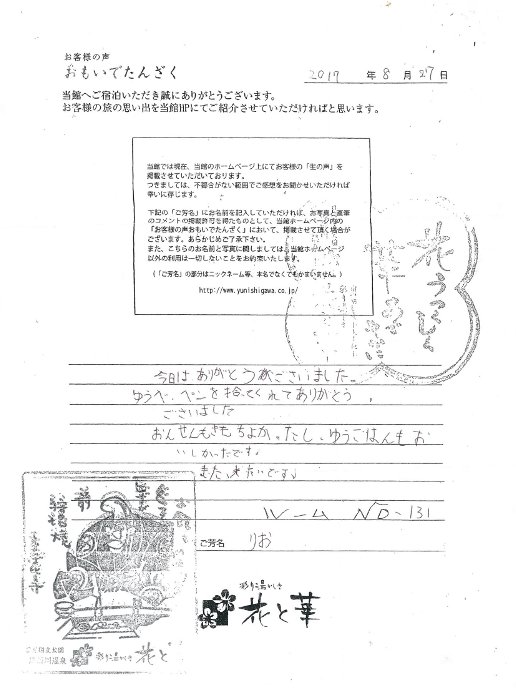 お客様の声
おもいでたんざく
2019 年 8 月 27 日
当館へご宿泊いただき誠にありがとうございます。
お客様の旅の思い出を当館HPにてご紹介させていただければと思います。
当館では現在、当館のホームページ上にてお客様の「生の声」を
掲載させていただいております。
つきましては、不都合がない範囲でご感想をお聞かせいただければ
幸いに存じます。
下記の「ご芳名」にお名前を記入していただければ、お写真と直筆
のコメントの掲載許可を得たものとして、当館ホームページ内の
「お客様の声おもいでたんざく」において、掲載させて頂く場合が
ございます。あらかじめご了承下さい。
また、こちらのお名前と写真に関しましては、当館ホームページ
以外の利用は一切しないことをお約束いたします。
(「ご芳名」の部分はニックネーム等、本名でなくてもかまいません。)
http://www.yunishigawa.co.jp/
今日はありがとうございました。
ゆうべ、ペンを拾ってくれてありがとう
ございました
おんせんもきもちよかったし、ゆうごはんもお
いしかったです。
また、来たいです。
ルーム NO-131
ご芳名 りお
彩り湯かしき
花と華